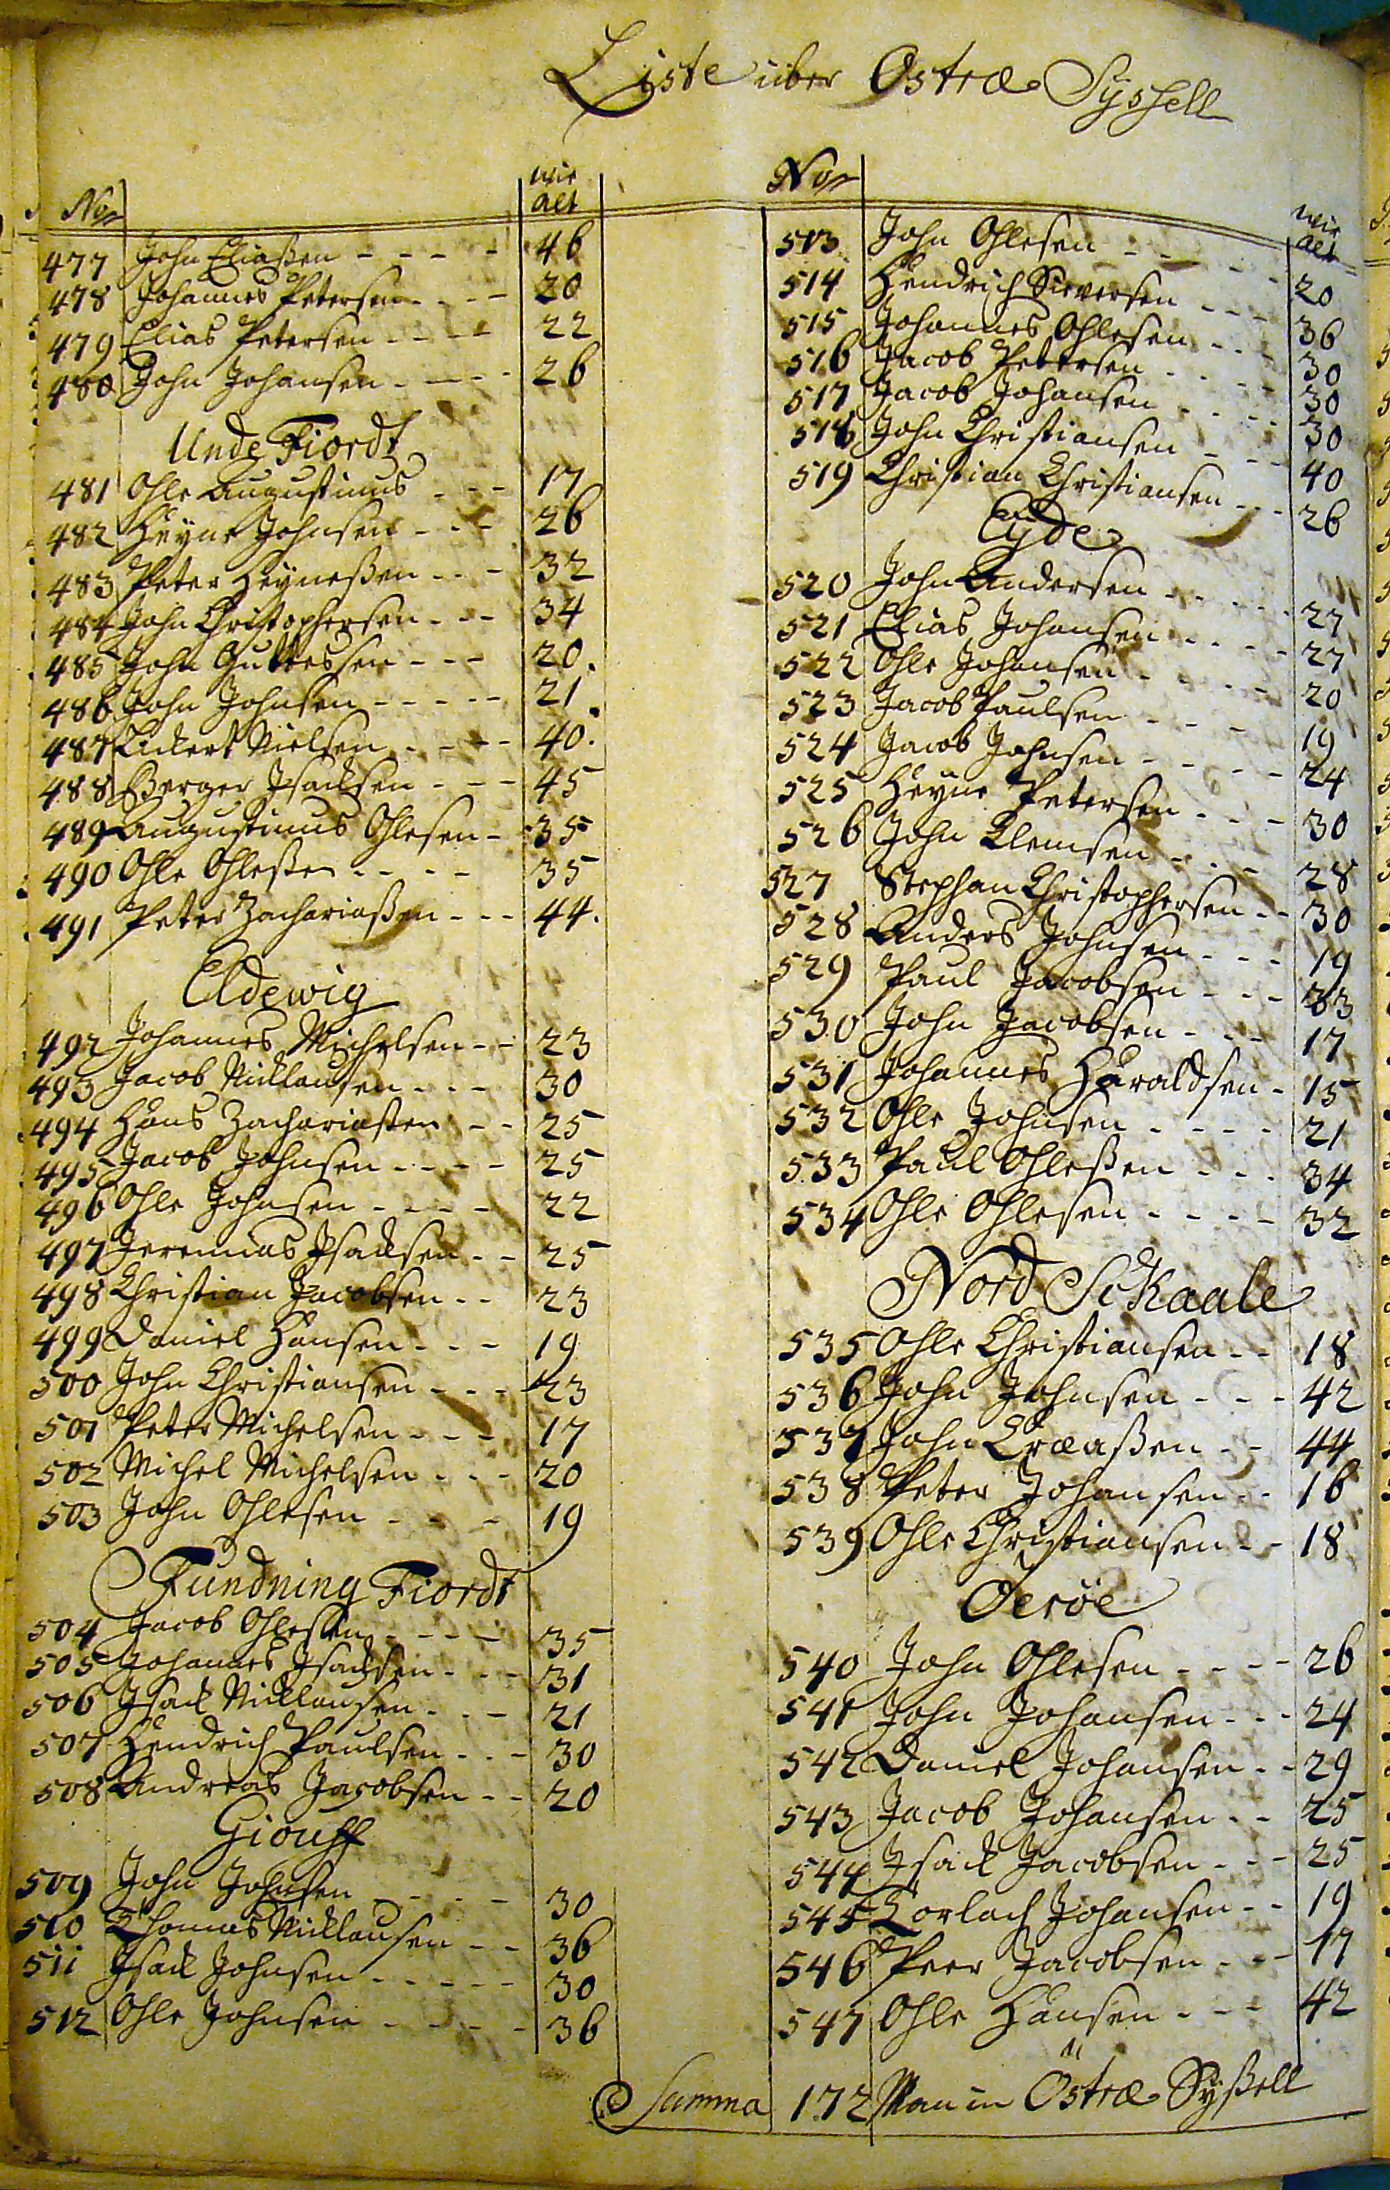 Liste über Ostræ Syssell
No
wie
alt
477 John Eliaßen - - - - 46
478 Johannes Petersen - - - 20
479 Elias Petersen - - - - 22
480 John Johansen - - - - 26
Unde Fiordt
481 Ohle Augustinus - - - 17
482 Heyne Johnsen - - - 26
483 Peter Heyneßen - - - 32
484 John Christophersen - - - 34
485 John Guttessen - - - 20.
486 John Johnsen - - - - - 21
487 Eickert Nielsen - - - - 40.
488 Berger Isacksen - - - 45
489 Augustinus Ohlesen - 35
490 Ohle Ohleßen - - - - 35
491 Peter Zachariaßen - - - 44.
Eldewig
492 Johannes Michelsen - - 23
493 Jacob Nicklausen - - - 30
494 Hans Zachariaßen - - 25
495 Jacob Johnsen - - - - 25
496 Ohle Johnsen - - - - 22
497 Jeremias Isacksen - - 25
498 Christian Jacobsen - - 23
499 Daniel Hansen - - - 19
500 John Christiansen - - - 23
501 Peter Michelsen - - - 17
502 Michel Michelsen - - - 20
503 John Ohlesen - - - 19
Fundning Fiordt
504 Jacob Ohlesen - - - - 35
505 Johannes Isacksen - - - 31
506 Isack Nicklausen - - - 21
507 Hendrich Paulsen - - - 30
508 Andreas Jacobsen - - 20
Giouff
509 John Johnsen - - - - 30
510 Thomas Nicklausen - - 36
511 Isack Johnsen - - - - - 30
512 Ohle Johnsen - - - - 36
No
wie
alt
513 John Ohlesen - - - - - 20
514 Hendrich Sieversen - - - 36
515 Johannes Ohlesen - - - 30
516 Jacob Petersen - - - - 30
517 Jacob Johansen - - - - 30
518 John Christiansen - - - 40
519 Christian Christiansen - - - 26
Eyde
520 John Andersen - - - - - 27
521 Elias Johansen - - - - 27
522 Ohle Johansen - - - - 20
523 Jacob Paulsen - - - 19
524 Jacob Johnsen - - - - 24
525 Heyne Petersen - - - 30
526 John Clemsen - - - - 28
527 Stephan Christophersen - - 30
528 Anders Johnsen - - - 19
529 Paul Jacobsen - - - 33
530 John Jacobsen - - - 17
531 Johannes Haraldsen - 15
532 Ohle Johnsen - - - - 21
533 Paul Ohleßen - - - 34
534 Ohle Ohlesen - - - - 32
Nord Sckaale
535 Ohle Christiansen - - 18
536 John Johnsen - - - 42
537 John Eræaßen - - 44
538 Peter Johansen - - 16
539 Ohle Christiansen - - 18
Oeröe
540 John Ohlesen - - - - 26
541 John Johansen - - - 24
542 Daniel Johansen - - 29
543 Jacob Johansen - - 25
544 Isack Jacobsen - - - 25
545 Torlack Johansen - - 19
546 Peer Jacobsen - - - 17
547 Ohle Hansen - - - 42
Summa 172 Man in Östræ Syßell